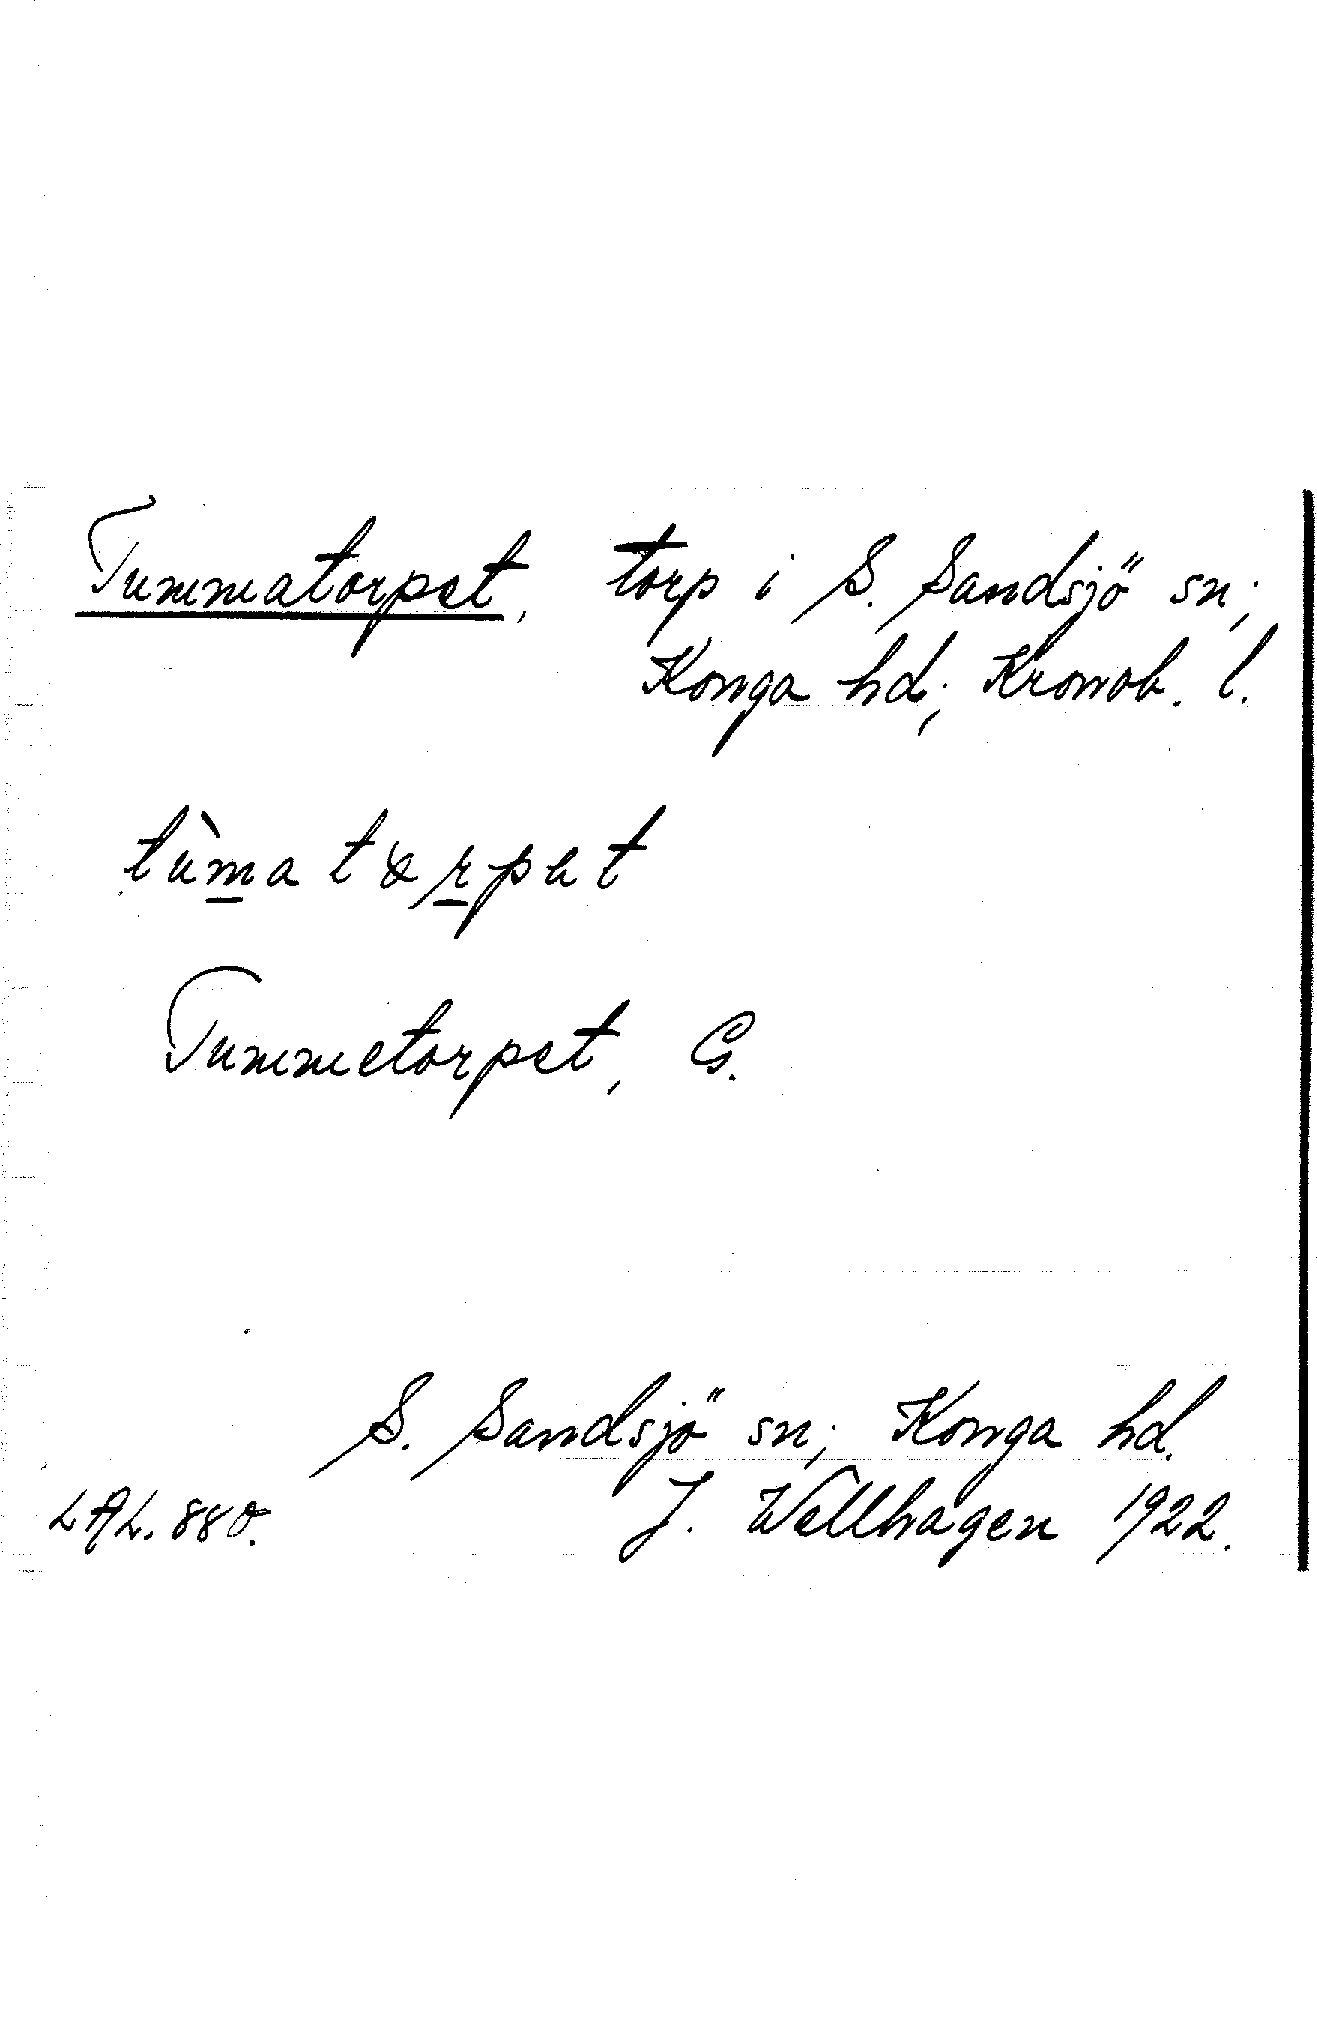 Tummatorpet, torp i S. Sandsjö sn;
Konga hd; Kronob. l.
tùma tɷrpet
Tummetorpet, G.
S. Sandsjö sn; Konga hd.
LAL. 880. J. Wellhagen 1922.